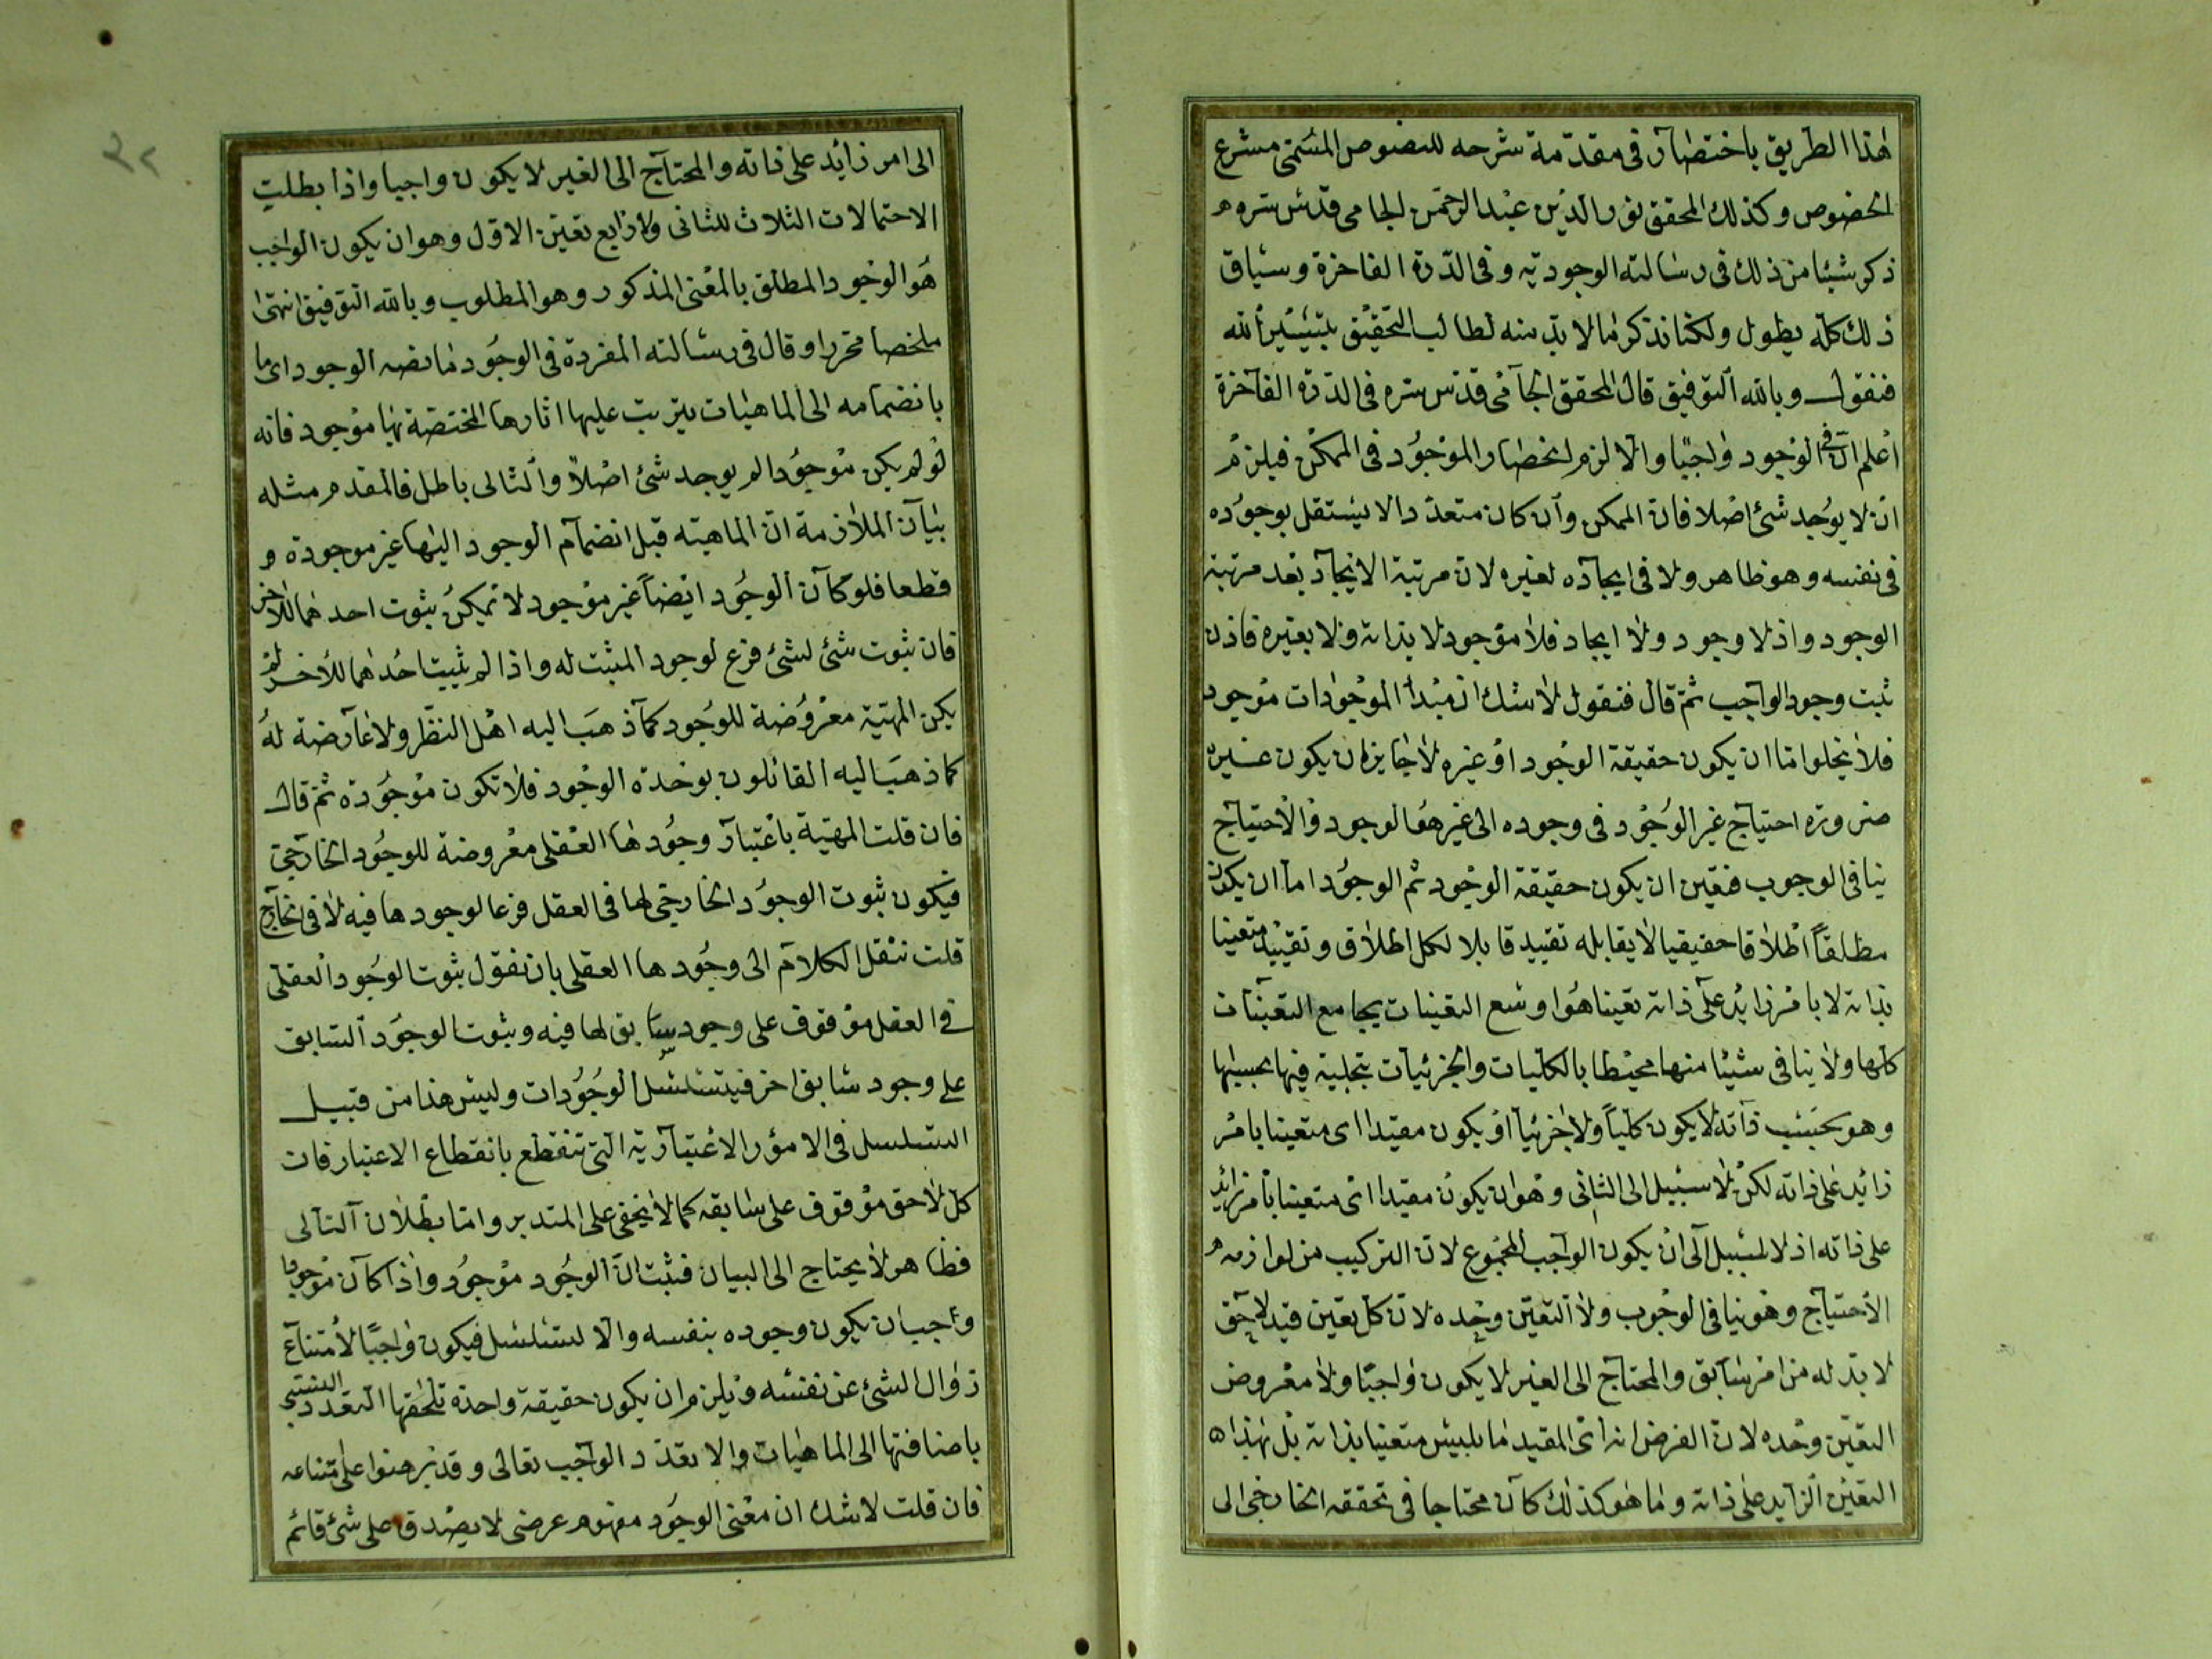 هذا الطريق باختصار في مقدمة شرحه للنصوص المسمى مشرع
الخصوص وكذلك المحقق نور الدين عبد الرحمن الجامي قدس سره
ذكر شيئا من ذلك في رسالته الوجودية وفي الدرة الفاخرة وسياق
ذلك كله يطول ولكنا نذكر ما لا بد منه لطالب التحقيق بتيسير الله
فنقول وبالله التوفيق قال المحقق الجامي قدس سره في الدرة الفاخرة
اعلم ان في الوجود واجبا والا لزم انحصار الموجود في الممكن فيلزم
ان لا يوجد شئ اصلا فان الممكن وان كان متعددا لا يستقل بوجوده
في نفسه وهو ظاهر ولا في ايجاده لغيره لان مرتبة الايجاد بعد مرتبة
الوجود واذ لا وجود ولا ايجاد فلا موجود لا بذاته ولا بغيره فاذن
ثبت وجود الواجب ثم قال فنقول لا شك ان مبدأ الموجودات موجود
فلا يخلوا اما ان يكون حقيقة الوجود او غيره لا جايز ان يكون غيره
ضرورة احتياج غير الوجود في وجوده الى غير هو الوجود والاحتياج
ينافي الوجوب فتعين ان يكون حقيقة الوجود ثم الوجود اما ان يكون
مطلقا اطلاقا حقيقيا لا يقابله تقييد قابلا لكل اطلاق وتقييد متعينا
بذاته لا بامر زايد على ذاته تعينا هو اوسع التعينات يجامع التعينات
كلها ولا ينافي شيئا منها محيطا بالكليات والجزئيات بتجليه فيها بحسبها
وهو بحسب ذاته لا يكون كليا ولا جزئيا او يكون مقيدا اى متعينا بامر
زائد على ذاته لكن لا سبيل الى الثاني وهو ان يكون مقيدا اى متعينا بامر زائد
على ذاته اذ لا سبيل الى ان يكون الواجب المجموع لان التركيب من لوازمه
الاحتياج وهو ينافي الوجوب ولا التعين وحده لان كل تعين قيد لاحق
لا بد له من امر سابق والمحتاج الى الغير لا يكون واجبا ولا معروض
التعين وحده لان الفرض انه اى المقيد ما ليس متعينا بذاته بل بهذا
التعين الزايد على ذاته وما هو كذلك كان محتاجا في تحققه الخارجي الى
الى امر زائد على ذاته والمحتاج الى الغير لا يكون واجبا واذا بطلت
الاحتمالات الثلاث للثاني ولا رابع تعين الاول وهو ان يكون الواجب
هو الوجود المطلق بالمعنى المذكور وهو المطلوب وبالله التوفيق انتهى
ملخصا محررا وقال في رسالته المفردة في الوجود ما نصه الوجود اى ما
بانضمامه الى الماهيات يترتب عليها اثارها المختصة بها موجود فانه
لو لم يكن موجودا لم يوجد شئ اصلا والتالى باطل فالمقدم مثله
بيان الملازمة ان الماهية قبل انضمام الوجود اليها غير موجودة
قطعا فلو كان الوجود ايضا غير موجود لا يمكن ثبوت احدهما للاخر
فان ثبوت شئ لشئ فرع لوجود المثبت له واذا لم يثبت احدهما للاخر لم
يكن المهية معروضة للوجود كما ذهب اليه اهل النظر ولا عارضة له
كما ذهب اليه القائلون بوحدة الوجود فلا تكون موجودة ثم قال
فان قلت المهية باعتبار وجودها العقلى معروضة للوجود الخارجي
فيكون ثبوت الوجود الخارجي لها في العقل فرعا لوجودها فيه لا في الخارج
قلت ننقل الكلام الى وجودها العقلى بان نقول ثبوت الوجود العقلى
في العقل موقوف على وجود سابق لها فيه وثبوت الوجود السابق
على وجود سابق اخر فيتسلسل الوجودات وليس هذا من قبيل
التسلسل في الامور الاعتبارية التى تنقطع بانقطاع الاعتبار فان
كل لاحق موقوف على سابقه كما لا يخفى على المتدبر واما بطلان التالى
فظاهر لا يحتاج الى البيان فثبت ان الوجود موجود واذا كان موجودا
واجب ان يكون وجوده بنفسه والا لتسلسل فيكون واجبا لامتناع
زوال الشئ عن نفسه ويلزم ان يكون حقيقة واحدة تلحقها التعدد النسبي
باضافتها الى الماهيات والا تعدد الواجب تعالى وقد برهنوا على امتناعه
فان قلت لا شك ان معنى الوجود مفهوم عرضى لا يصدق على شئ قائم